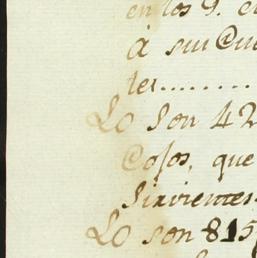 en los 9.
á su
tes........
Lo son 42
Cosos, que
Sirvientes
Lo son 815